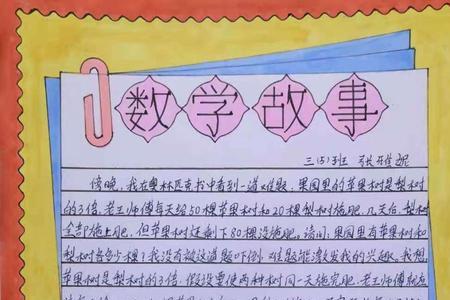 数学故事
三(5)班 张雅妮
傍晚,我在奥林匹克书中看到一道难题:果园里的苹果树是梨树
的3倍,老王师傅每天给50棵苹果树和20棵梨树施肥,几天后,梨树
全部施上肥,但苹果树还剩下80棵没施肥,请问:果园里有苹果树和
梨树各多少棵?我没有被这道题吓倒,难题能激发我的兴趣。我想,
苹果树是梨树的3倍,假设要使两种树同一天施完肥,老王师傅就应